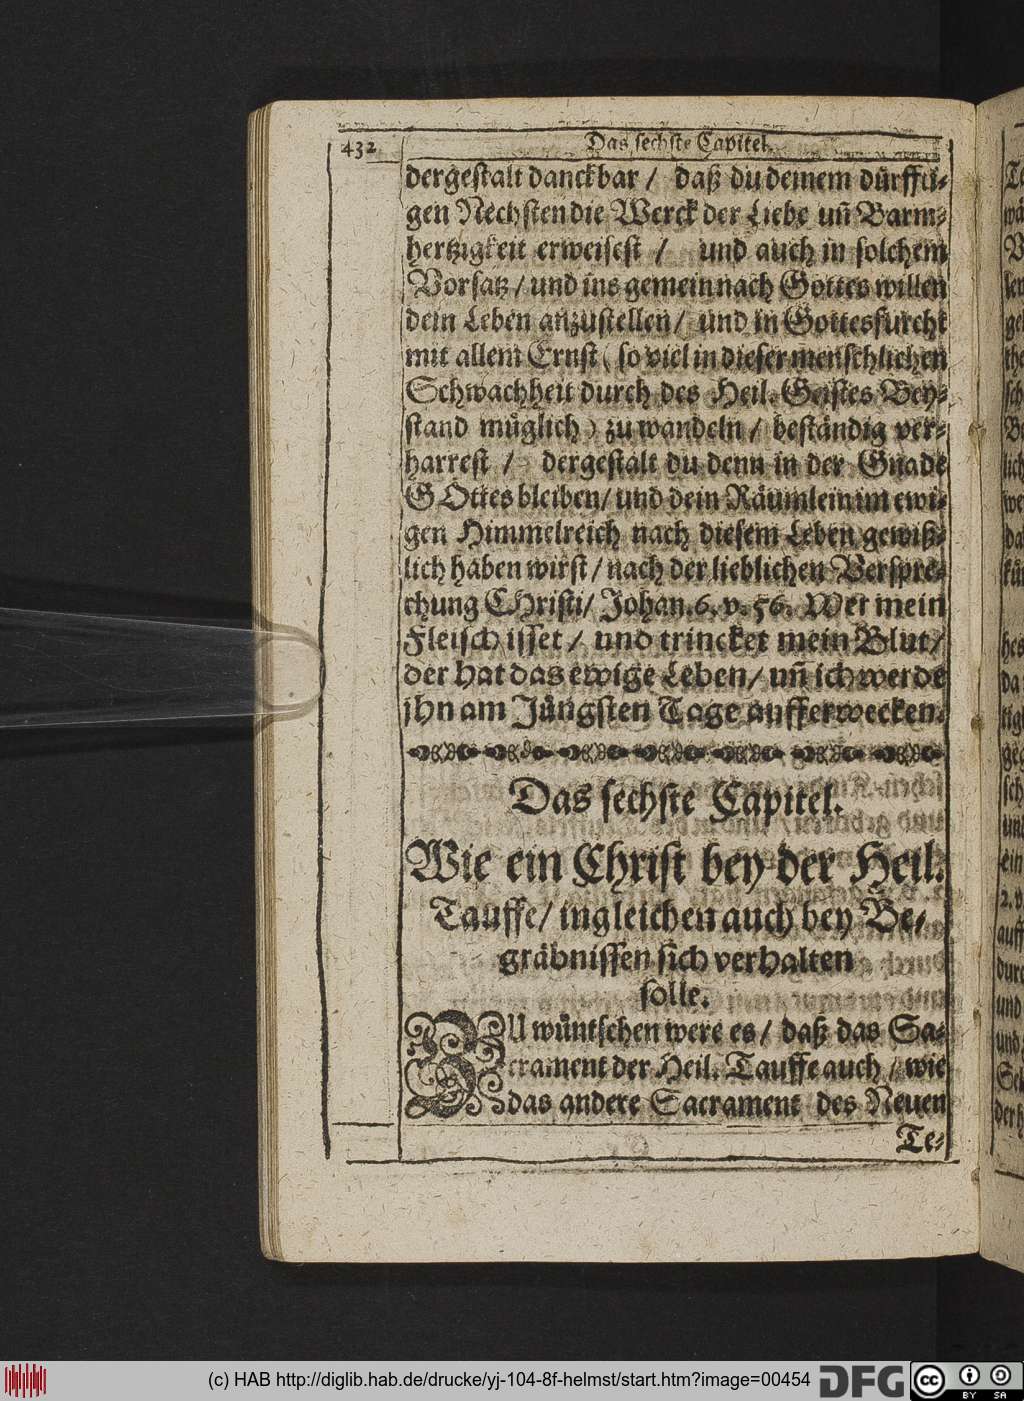 432
Das sechste Capitel.
dergestalt danckbar / daß du deinem dürffti-
gen Nechsten die Werck der Liebe uñ Barm-
hertzigkeit erweisest / und auch in solchem
Vorsatz / und ins gemein nach Gottes willen
dein Leben anzustellen / und in Gottesfurcht
mit allem Ernst ( so viel in dieser menschlichen
Schwachheit durch des Heil. Geistes Bey-
stand müglich ) zu wandeln / beständig ver-
harrest / dergestalt du denn in der Gnade
GOttes bleiben / und dein Räumlein im ewi-
gen Himmelreich nach diesem Leben gewiß-
lich haben wirst / nach der lieblichen Verspre-
chung CHristi / Johan. 6. v. 56. Wer mein
Fleisch isset / und trincket mein Blut /
der hat das ewige Leben / uñ ich werde
jhn am Jüngsten Tage aufferwecken.
Das sechste Capitel.
Wie ein Christ bey der Heil.
Tauffe / ingleichen auch bey Be-
gräbnissen sich verhalten
solle.
ZU wüntschen were es / daß das Sa-
crament der Heil. Tauffe auch / wie
das andere Sacrament des Neuen
Te-
(c) HAB http://diglib.hab.de/drucke/yj-104-8f-helmst/start.htm?image=00454
DFG
cc
BY SA